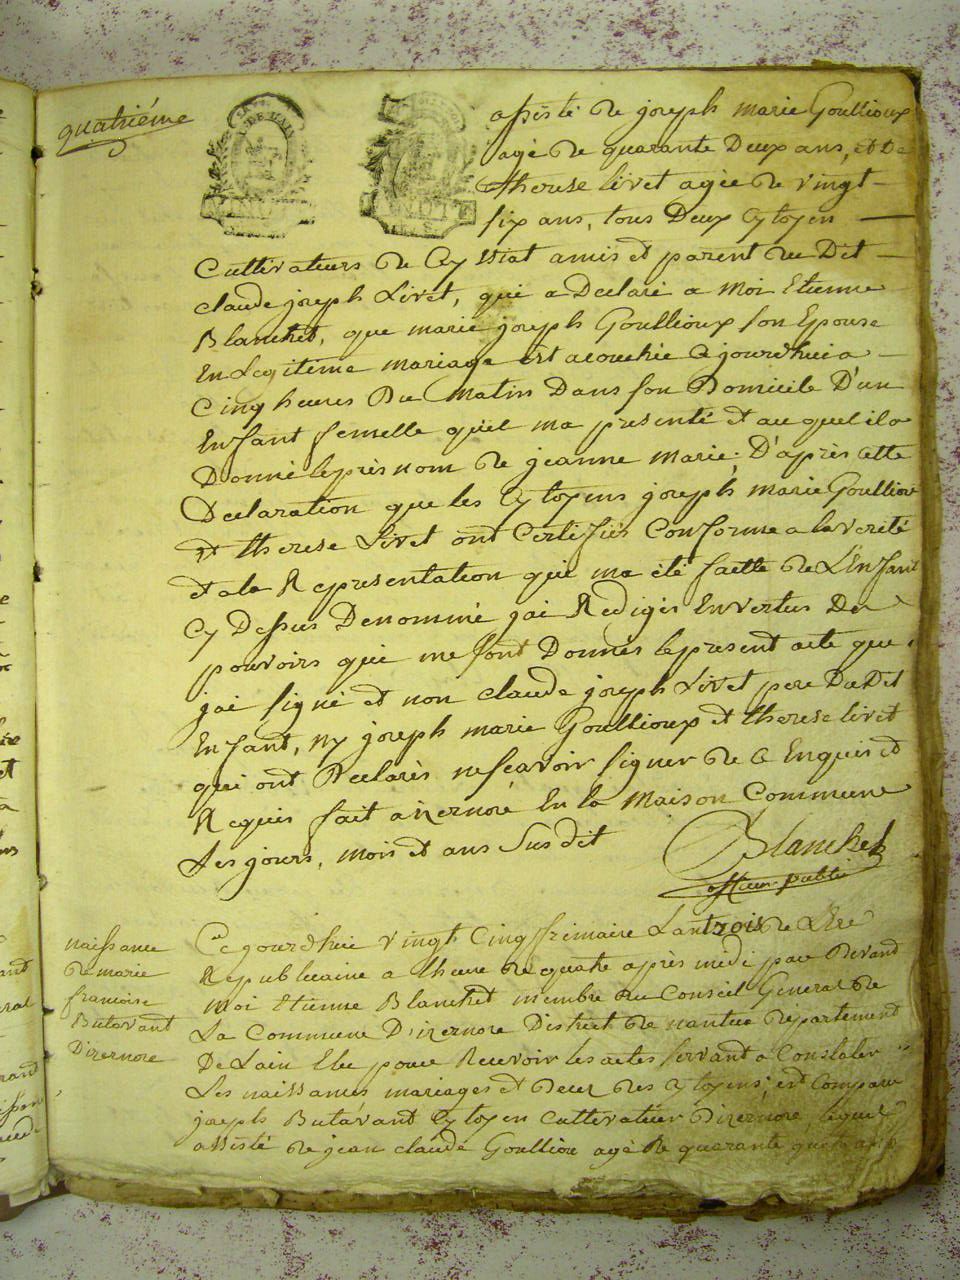 quatriéme
assisté de joseph marie Goullioux
agé de quarante Deux ans, et De
therese livet agée de vingt
six ans, tous Deux Cytoyen
Cultivateurs de Cyssiat amis et parent du Dit
claude joseph Livet, qui a Declaré a moi Etienne
Blanchet, que marie joseph Goullioux son Epouse
En Legitime mariage est acouchée Cejourdhui a
Cinq heures Du matin Dans son Domicile D'un
Enfant femelle qu'il ma presenté et au quel il a
Donné le prèsnom de jeanne marie; D'après cette
Declaration que les Cytoyens joseph marie Goulliou
et therese Livet ont Certifiés Conforme a la verité
et a la Representation qui ma été faitte de L'Enfant
Cy Dessus Denommé jai Redigés En vertus Des
pouvoirs qui me sont Donnés le present acte que
jai signé et non claude joseph Livet pere Du Dit
Enfant, ny joseph marie Goullioux et therese livet
qui ont Declarés ne scavoir signer de ce Enquis et
Requis fait a izernore En la maison Commune
Les jours, mois et ans Susdit
Blanchet
officier public
naissance
de marie
francoise
Butavant
Dizernore
Cejourdhui vingt Cinq frimaire Lan trois de L'Ere
Republicaine a lheure de quatre après midi par Devand
moi Etienne Blanchet membre du Conseil General de
La Commune D'izernore District de nantua departement
De Lain Elu pour Recevoir les actes servant a Constater
Les naissances mariages et deces des Cytoyens; est Comparu
joseph Butavant Cytoyen Cultivateur Dizernore, lequel
assisté de jean claude Goulliou agé de quarante